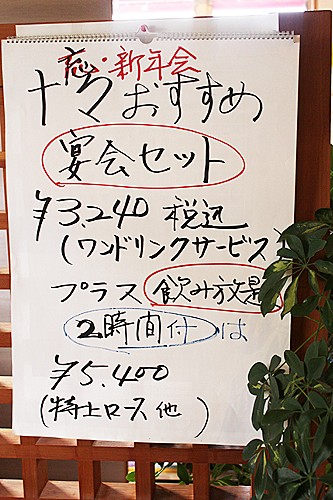 忘・新年会
十マおすすめ
宴会セット
¥3.240 税込
(ワンドリンクサービス)
プラス 飲み放題
2時間付 は
¥5.400
(特上ロース他)